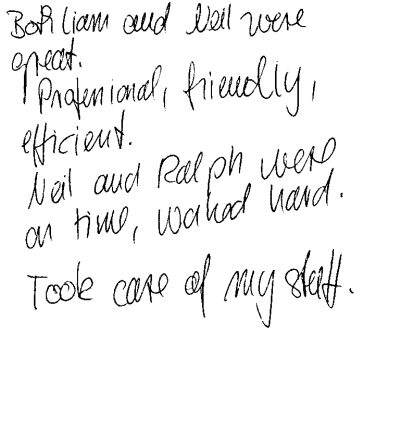 Both Liam and Neil were
great.
Professional, friendly,
efficient.
Neil and Ralph were
on time, worked hard.
Took care of my stuff.